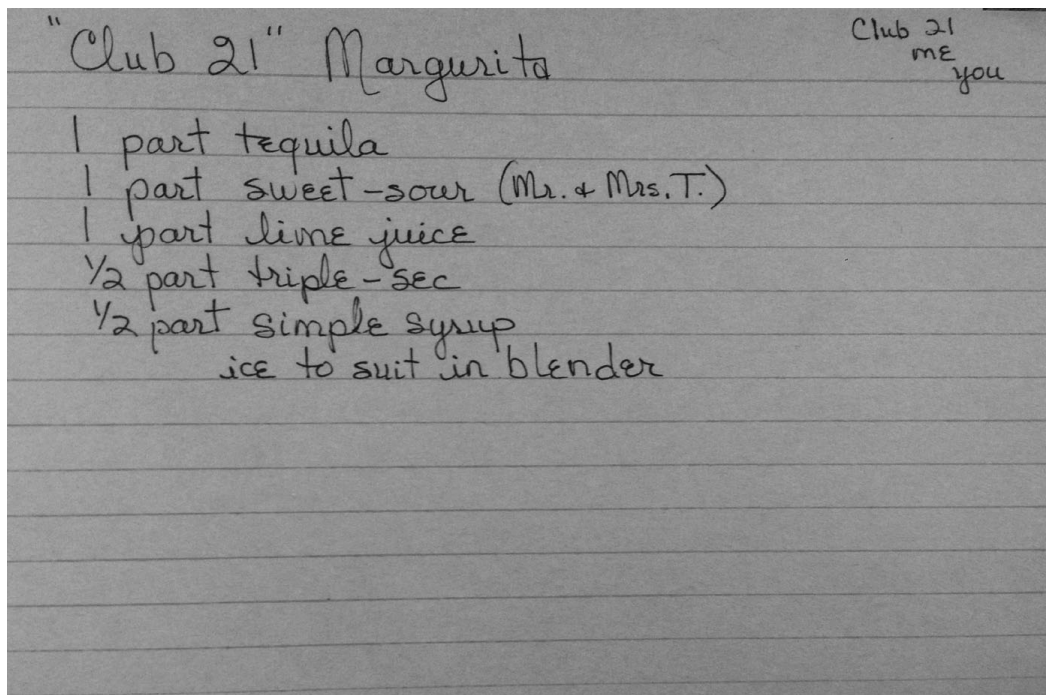 "Club 21" Margurita
Club 21
me
you
1 part tequila
1 part sweet-sour (Mr. & Mrs. T.)
1 part lime juice
1/2 part triple-sec
1/2 part simple syrup
ice to suit in blender